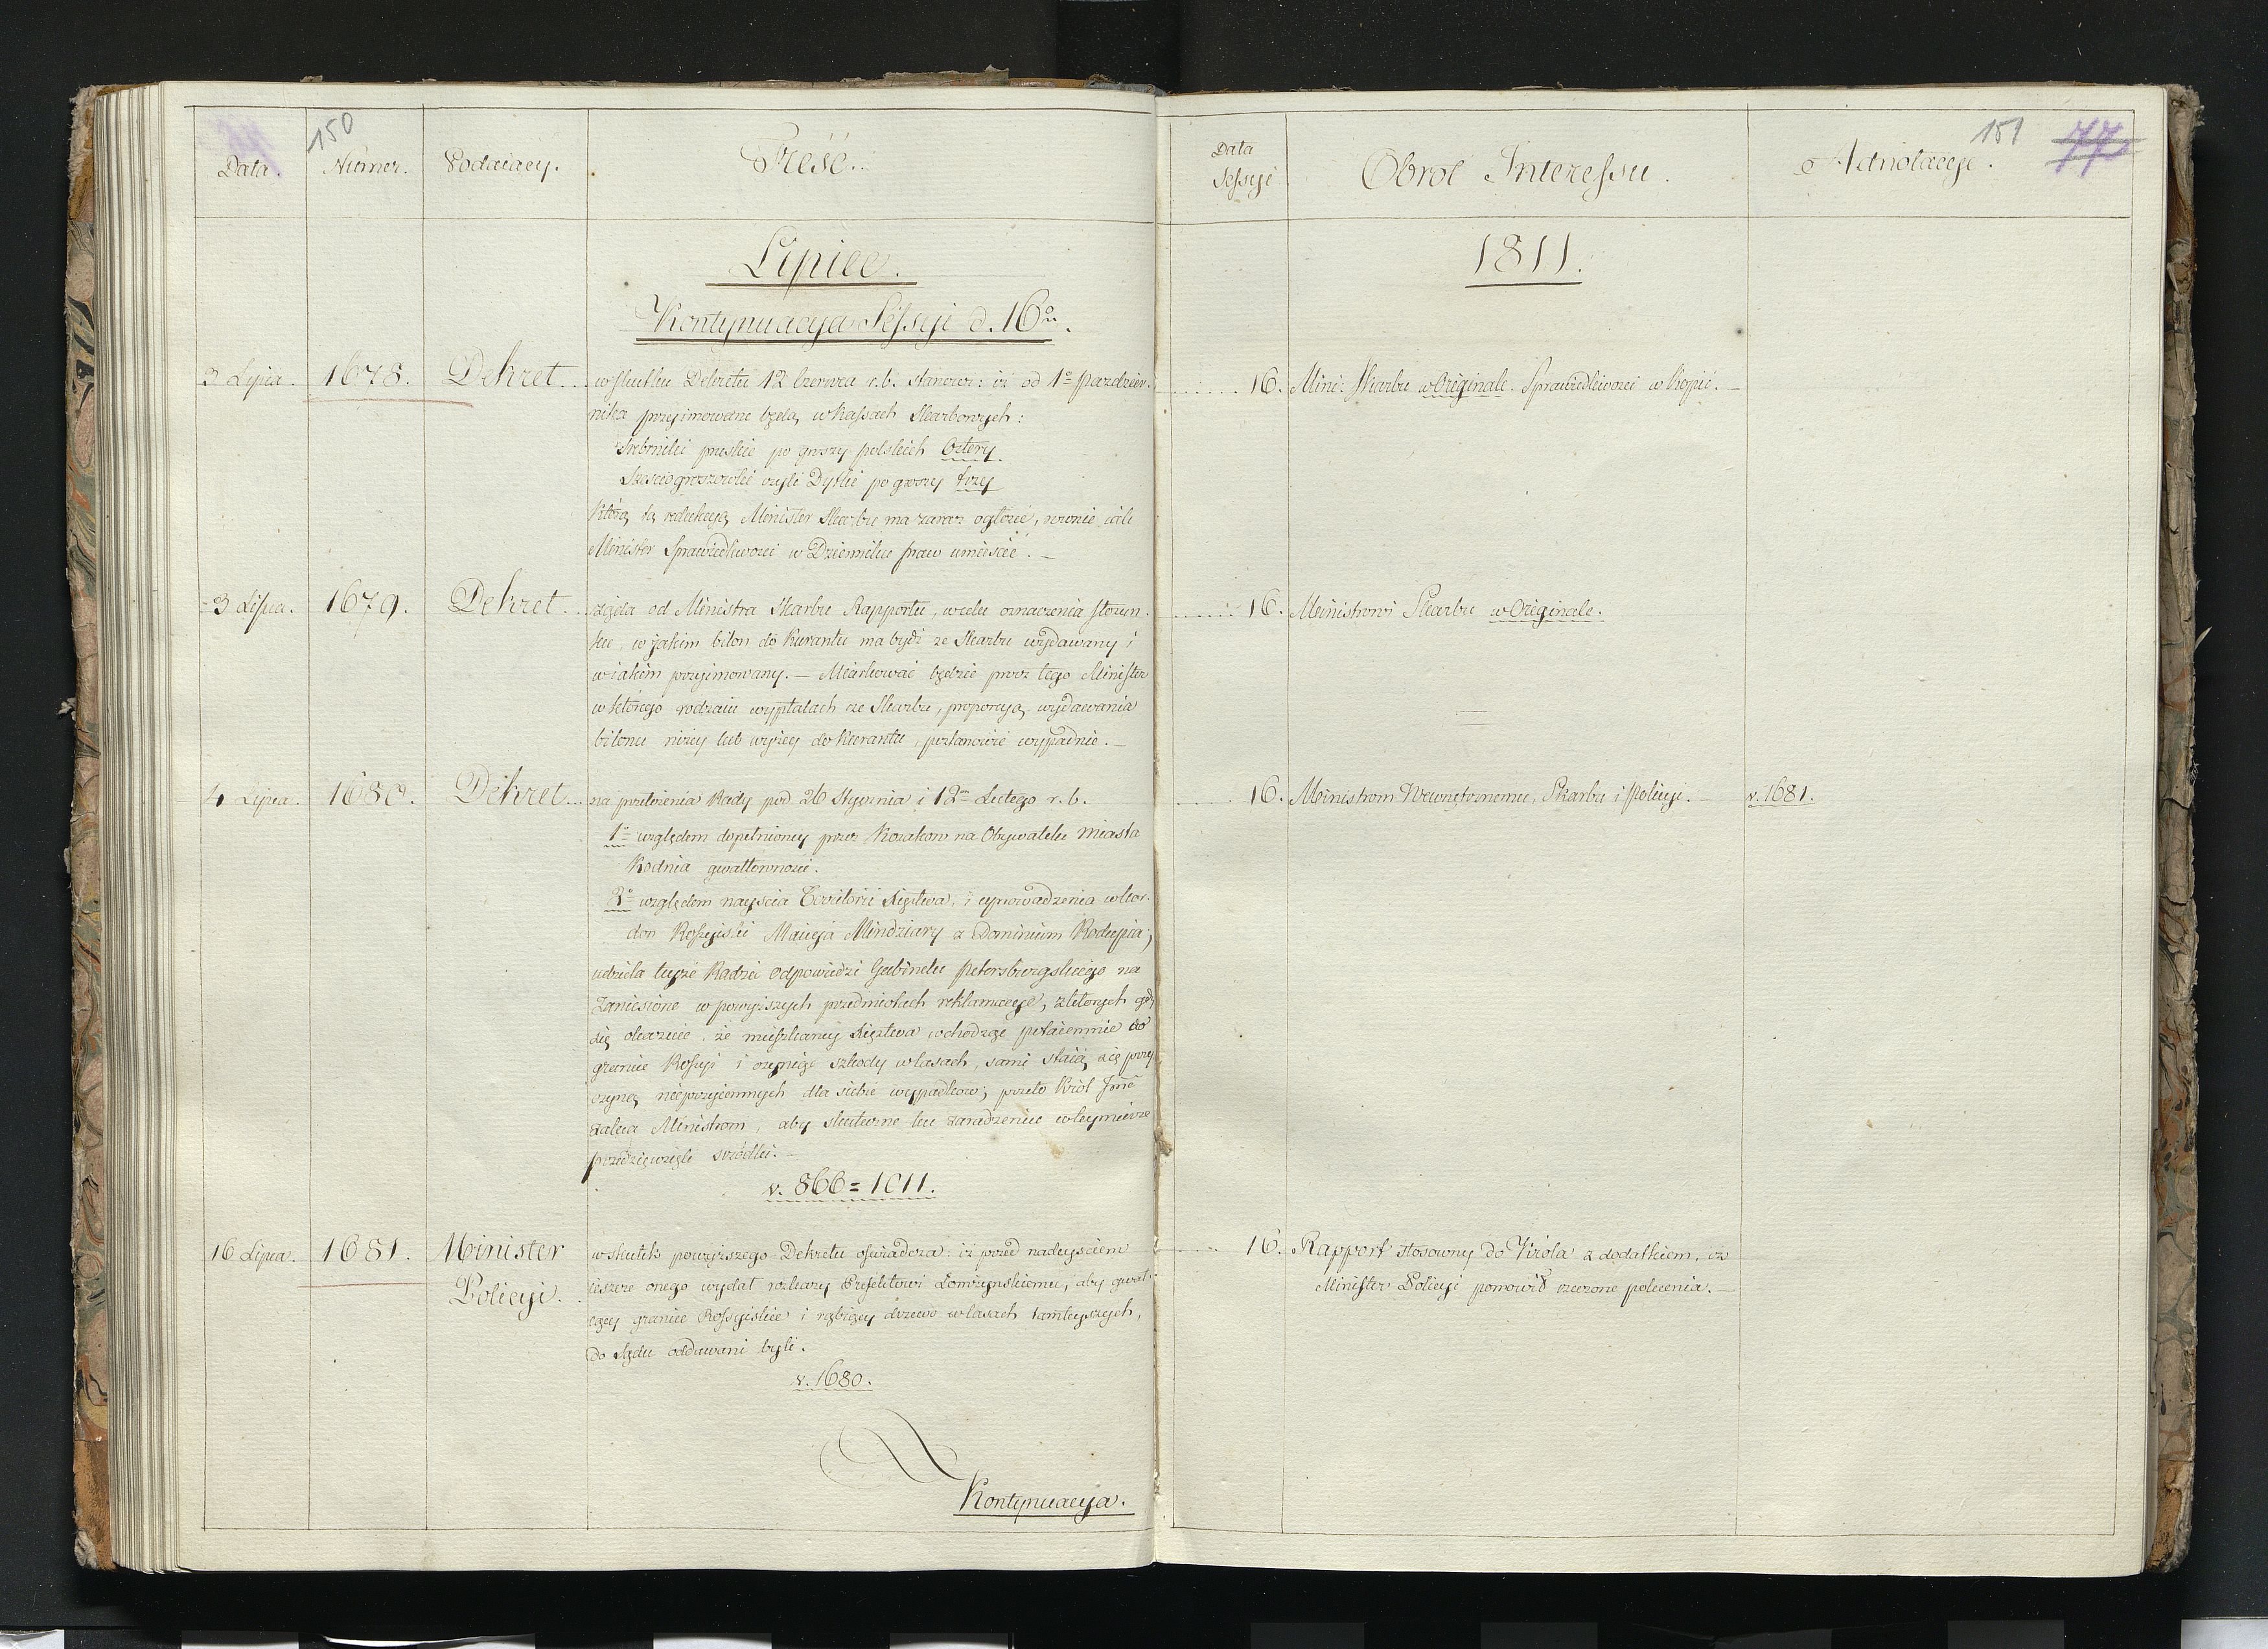 150
Data. Numer. Podaiący. Treść.
Lipiec.
Kontynuacya Sessyi d. 16º.
3 Lipca. 1678. Dekret... w skutku Dekretu 12 Czerwca r.b. stanowi: iż od 1º Paździer-
nika przyimowane będą w Kassach Skarbowych:
Srebrniki pruskie po groszy polskich Cztery.
Sześciogroszówki czyli Dytki po groszy trzy
którą tę redukcyą Minister Skarbu ma zaraz ogłosić, równie iak
Minister Sprawiedliwości w Dzienniku praw umieścić. —
3 Lipca. 1679. Dekret. żąda od Ministra Skarbu Rapportu, wcelu oznaczenia stosun-
ku, w jakim bilon do Kurantu ma bydź ze Skarbu wydawany i
w iakim przyimowany. — Miarkować będzie przez tego Minister
w którego rodzaiu wypłatach ze Skarbu, proporcyą wydawania
bilonu niżey lub wyżey do Kurantu, postanowić wypadnie. —
4 Lipca. 1680. Dekret... na przełożenia Rady pod 26 Stycznia i 12 Lutego r.b.
1º względem dopełnioney przez Kozaków na Obywatelu Miasta
Kodnia gwałtowności.
2º względem nayścia Territorii Xięztwa, i uprowadzenia w kor-
don Rossyiski Macieja Mindziary z Dominium Rodupia;
udziela teyże Radzie odpowiedzi Gabinetu Petersburgskiego na
zaniesione w powyższych przedmiotach reklamacye, z których gdy
się okazuie, że mieszkańcy Xięztwa wchodząc potaiemnie do
granic Rossyi i czyniąc szkody w lasach, sami staią się przy-
czyną nieprzyiemnych dla siebie wypadków; przeto Król Jmć
zaleca Ministrom, aby skuteczne ku zaradzeniu w tey mierze
przedsięwzięli środki. —
v. 866 = 1011.
16 Lipca. 1681. Minister Policyi. w skutek powyższego Dekretu oświadcza: iż przed nadeyściem
ieszcze onego wydał rozkazy Prefektowi Łomżyńskiemu, aby gwał-
cący granice Rossyiskie i rąbiący drzewo w lasach tamteyszych,
do Sądu oddawani byli.
v. 1680.
Kontynuacya.
151 77
Data Sessyi Obrot Interessu. Adnotacye.
1811.
16. Mini: Skarbu w Originale. Sprawiedliwości w kopii. —
16. Ministrowi Skarbu w Originale.
16. Ministrom Wewnętrznemu, Skarbu i Policyi. — v. 1681.
16. Rapport stosowny do Króla z dodatkiem, iż
Minister Policyi ponowił rzeczone polecenia. —